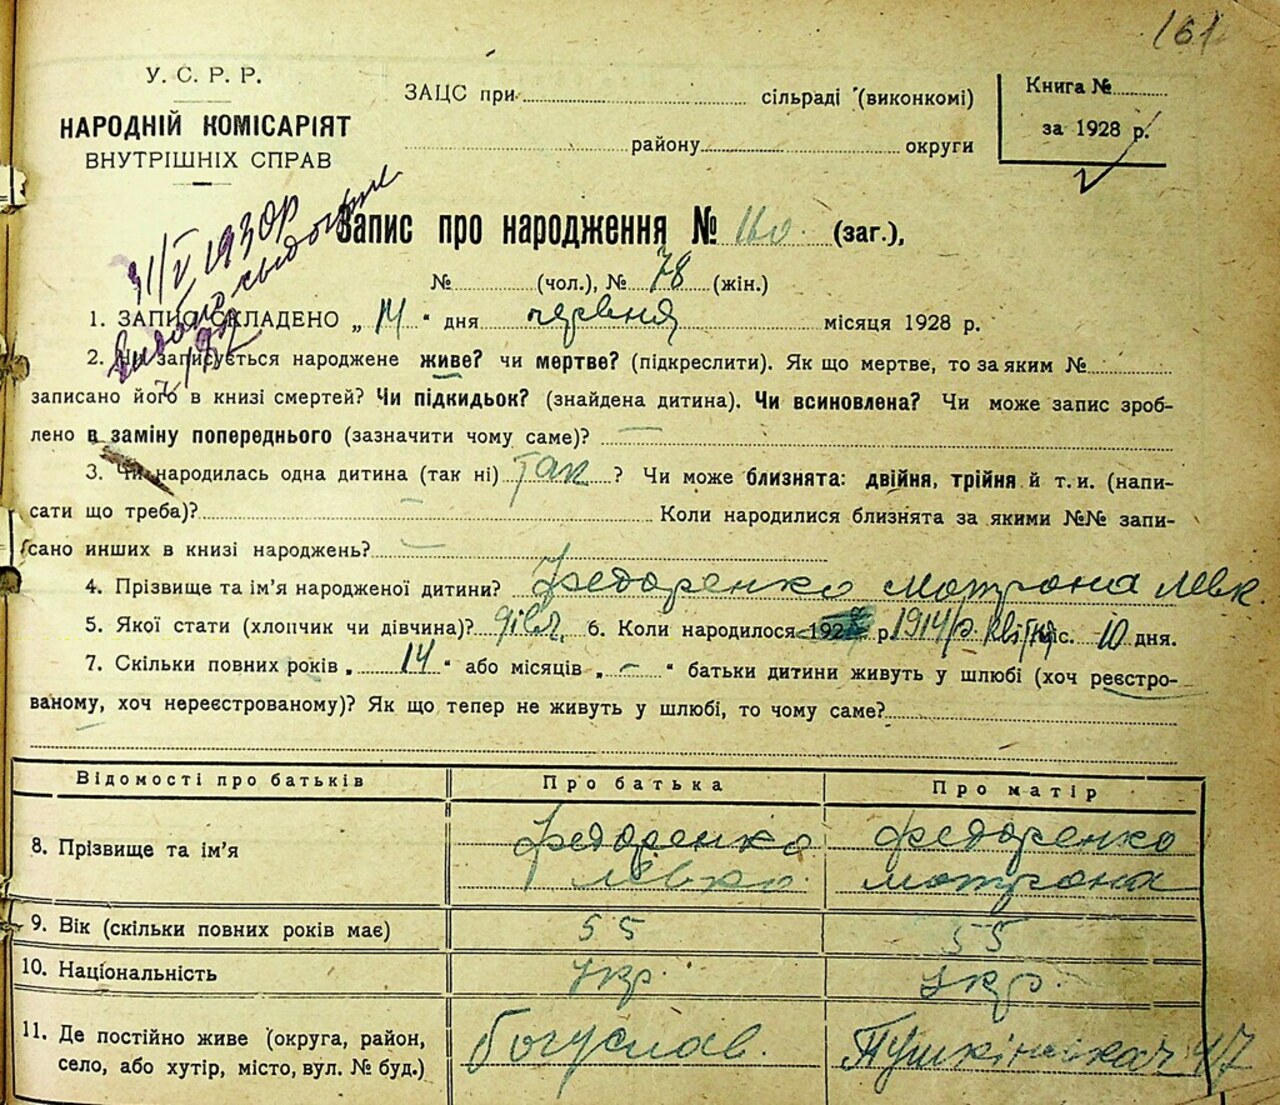 161
У. С. Р. Р.
НАРОДНІЙ КОМІСАРІЯТ
ВНУТРІШНІХ СПРАВ
ЗАЦС при сільраді (виконкомі)
району округи
Книга №
за 1928 р.
31/V 1930р
Запис про народження № 160. (заг.),
№ (чол.), № 78 (жін.)
1. ЗАПИС СКЛАДЕНО „ 14 “ дня червня місяця 1928 р.
2. Чи записується народжене живе? чи мертве? (підкреслити). Як що мертве, то за яким №
записано його в книзі смертей? Чи підкидьок? (знайдена дитина). Чи всиновлена? Чи може запис зроб-
лено в заміну попереднього (зазначити чому саме)? —
3. Чи народилась одна дитина (так ні) так ? Чи може близнята: двійня, трійня й т. и. (напи-
сати що треба)? — Коли народилися близнята за якими №№ запи-
сано инших в книзі народжень? —
4. Прізвище та ім'я народженої дитини? Федоренко Мотрона Левк.
5. Якої стати (хлопчик чи дівчина)? дівч. 6. Коли народилося 192 р. 1914 р. квітня міс. 10 дня.
7. Скільки повних років „ 14 “ або місяців „ — “ батьки дитини живуть у шлюбі (хоч реєстро-
ваному, хоч нереєстрованому)? Як що тепер не живуть у шлюбі, то чому саме?
Відомості про батьків Про батька Про матір
8. Прізвище та ім'я Федоренко Левко. Федоренко Мотрона
9. Вік (скільки повних років має) 55 55
10. Національність Укр. Укр.
11. Де постійно живе (округа, район, Богуслав. Пушкінська ч 47
село, або хутір, місто, вул. № буд.)